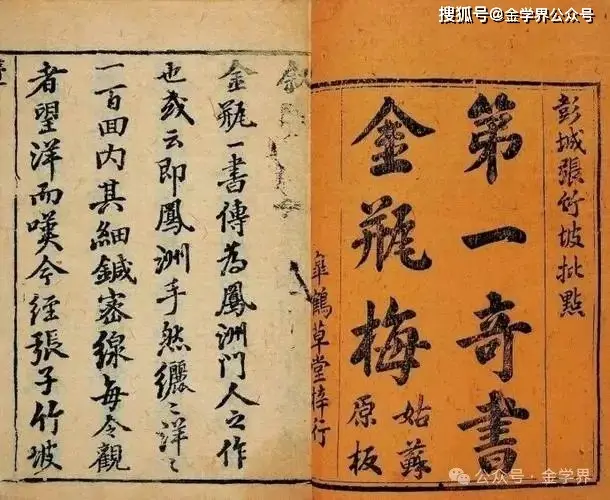 搜狐号@金学界公众号
彭城張竹坡批點
第一奇書
金瓶梅
姑蘇
原板
皐鶴草堂梓行
金瓶一書傳為鳳洲門人之作
也或云即鳳洲手然纚〻洋〻
一百回内其細鍼密線每令觀
者望洋而嘆今經張子竹坡
公众号·金学界